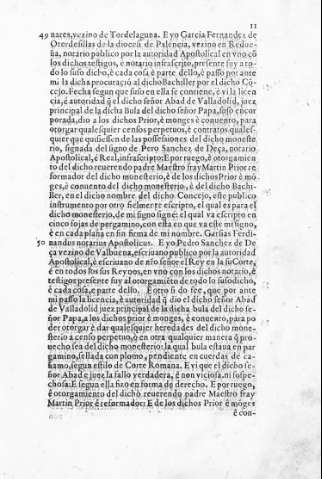 11
49 nares, vezino de Tordelaguna. E yo Garcia Fernandez de
Oterdesillas de la diocesi de Palencia, vezino en Redue-
ña, notario publico por la autoridad Apostolical en vno cõ
los dichos testigos, é notario infrascrito, presente fuy a to-
do lo suso dicho, é cada cosa é parte dello, é passò por ante
mi la dicha procuraciõ al dicho Bachiller por el dicho Cõ-
cejo. Fecha segun que suso en ella se contiene, é vi la licen
cia, é autoridad q̃ el dicho señor Abad de Valladolid, juez
principal de la dicha Bula del dicho señor Papa, suso encor
porada, dio a los dichos Prior, é monges é conuento, para
otorgar qualesquier censos perpetuos, é contratos quales-
quier que quisiessen de las possessiones del dicho moneste
rio, signada del signo de Pero Sanchez de Deça, notario
Apostolical, é Real, infrascripto: E por ruego, é otorgamien
to del dicho reuerendo padre Maestro fray Martin Prior re
formador del dicho monesterio, é de los dichos Prior é mõ
ges, é conuento del dicho monesterio, é del dicho Bachi-
ller, en el dicho nombre del dicho Concejo, este publico
instrumento por otro fielmente escripto, el qual es para el
dicho monesterio, de mi signo signé: el qual va escripto en
cinco fojas de pergamino, con esta en que va este mi signo,
é en cada plana en fin firma de mi nombre. Garsias Ferdi-
50 nandus notarius Apostolicus. E yo Pedro Sanchez de De
ça vezino de Valbuena, escriuano publico por la autoridad
Apostolical, é escriuano de n̄ro señor el Rey en la su Corte,
é en todos los sus Reynos, en vno con los dichos notario, é
testigos presente fuy al otorgamiento de todo lo susodicho,
é cada cosa, é parte dello. E otro si do fee, que por ante
mi passò la licencia, é autoridad q̃ dio el dicho señor Abad
de Valladolid juez principal de la dicha bula del dicho se-
ñor Papa, a los dichos prior é monges, é conuento, para po
der otorgar é dar qualesquier heredades del dicho mone-
sterio á censo perpetuo, ó en otra qualquier manera q̃ pro-
uecho sea del dicho monesterio: la qual bula estaua en par
gamino, sellada con plomo, pendiente en cuerdas de cá-
ñamo, segun estilo de Corte Romana. E vi que el dicho se-
ñor Abad é juez la fallo verdadera, é non viciosa, ni sospe-
chosa: E segun ella fizo en forma de derecho. E por ruego,
é otorgamiento del dicho reuerendo padre Maestro fray
Martin Prior é reformador: E de los dichos Prior é mõges
é con-